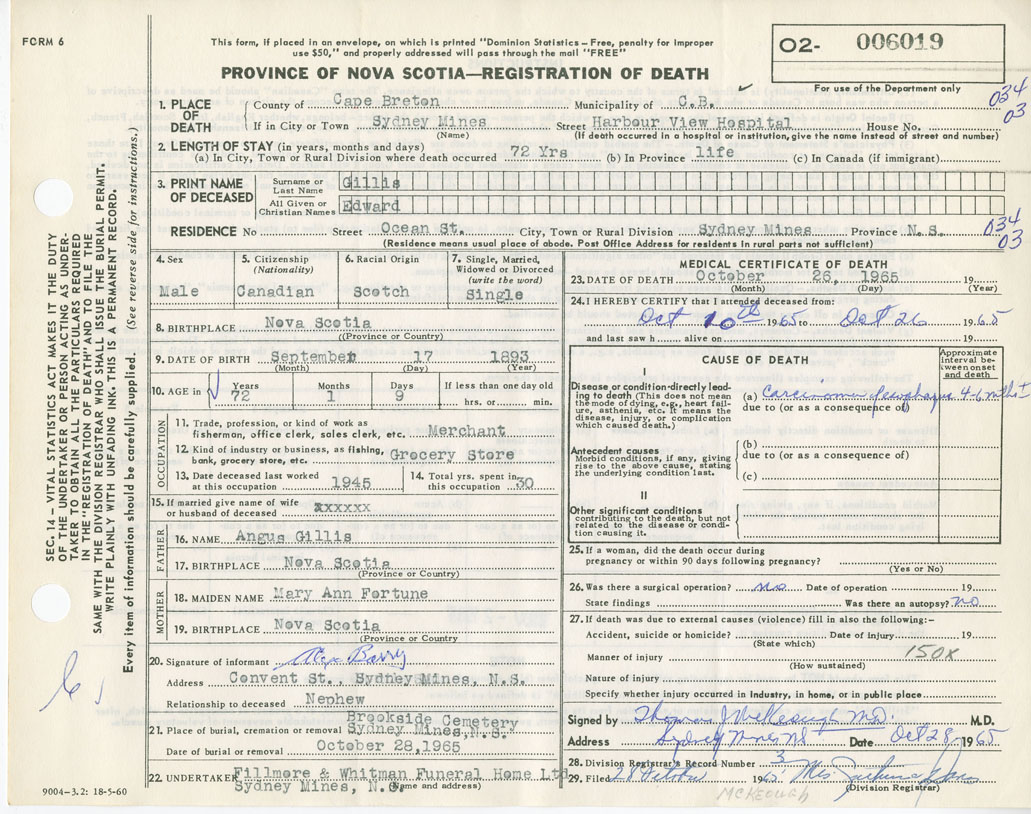 FORM 6
This form, if placed in an envelope, on which is printed "Dominion Statistics – Free, penalty for improper
use $50," and properly addressed will pass through the mail "FREE"
02- 006019
For use of the Department only
PROVINCE OF NOVA SCOTIA—REGISTRATION OF DEATH
034
03
1. PLACE OF DEATH
County of Cape Breton Municipality of C.B.
If in City or Town Sydney Mines Street Harbour View Hospital House No.
(Name) (If death occurred in a hospital or institution, give the name instead of street and number)
2. LENGTH OF STAY (in years, months and days)
(a) In City, Town or Rural Division where death occurred 72 Yrs (b) In Province life (c) In Canada (if immigrant)
3. PRINT NAME OF DECEASED
Surname or Last Name Gillis
All Given or Christian Names Edward
RESIDENCE No Street Ocean St. City, Town or Rural Division Sydney Mines Province N.S.
(Residence means usual place of abode. Post Office Address for residents in rural parts not sufficient)
034
03
4. Sex
Male
5. Citizenship
(Nationality)
Canadian
6. Racial Origin
Scotch
7. Single, Married,
Widowed or Divorced
(write the word)
Single
8. BIRTHPLACE Nova Scotia
((Province or Country)
9. DATE OF BIRTH September 17 1893
(Month) (Day) (Year)
10. AGE in
Years Months Days If less than one day old
72 1 9 hrs. or min.
OCCUPATION
11. Trade, profession, or kind of work as
fisherman, office clerk, sales clerk, etc. Merchant
12. Kind of industry or business, as fishing,
bank, grocery store, etc. Grocery Store
13. Date deceased last worked
at this occupation 1945
14. Total yrs. spent in
this occupation 30
15. If married give name of wife
or husband of deceased xxxxxx
FATHER
16. NAME Angus Gillis
17. BIRTHPLACE Nova Scotia
(Province or Country)
MOTHER
18. MAIDEN NAME Mary Ann Fortune
19. BIRTHPLACE Nova Scotia
(Province or Country
20. Signature of informant Alex Barry
Address Convent St., Sydney Mines, N.S.
Relationship to deceased Nephew
Brookside Cemetery
21. Place of burial, cremation or removal Sydney Mines, N.S.
Date of burial or removal October 28,1965
22. UNDERTAKER Fillmore & Whitman Funeral Home Ltd
Sydney Mines, N.S.
(Name and address)
MEDICAL CERTIFICATE OF DEATH
23. DATE OF DEATH October 26, 1965 19
(Month) (Day) (Year)
24. I HEREBY CERTIFY that I attended deceased from:
Oct 10th 1965 to Oct 26 1965
and last saw h alive on 19
CAUSE OF DEATH
Approximate
interval be-
tween onset
and death
I
Disease or condition directly lead-
ing to death (This does not mean
the mode of dying, e.g., heart fail-
ure, asthenia, etc. It means the
disease, injury, or complication
which caused death.)
(a) Carcinoma Esophagus 4-6 mths ±
due to (or as a consequence of)
Antecedent causes
Morbid conditions, if any, giving
rise to the above cause, stating
the underlying condition last.
(b)
due to (or as a consequence of)
(c)
II
Other significant conditions
contributing to the death, but not
related to the disease or condi-
tion causing it.
25. If a woman, did the death occur during
pregnancy or within 90 days following pregnancy?
(Yes or No)
26. Was there a surgical operation? no Date of operation 19
State findings Was there an autopsy? no
27. If death was due to external causes (violence) fill in also the following:–
Accident, suicide or homicide? Date of injury 19
(State which)
Manner of injury 150X
(How sustained)
Nature of injury
Specify whether injury occurred in industry, in home, or in public place
Signed by Thomas J McKeough M.D. M.D.
Address Sydney Mines NS Date Oct 28 1965
28. Division Registrar's Record Number 3
29. Filed 28 October 1965 Mrs.
(Division Registrar)
McKEOUGH
SEC. 14 – VITAL STATISTICS ACT MAKES IT THE DUTY
OF THE UNDERTAKER OR PERSON ACTING AS UNDER-
TAKER TO OBTAIN ALL THE PARTICULARS REQUIRED
IN THE "REGISTRATION OF DEATH" AND TO FILE THE
SAME WITH THE DIVISION REGISTRAR WHO SHALL ISSUE THE BURIAL PERMIT.
WRITE PLAINLY WITH UNFADING INK. THIS IS A PERMANENT RECORD.
Every item of information should be carefully supplied. (See reverse side for instructions.)
9004-3.2: 18-5-60